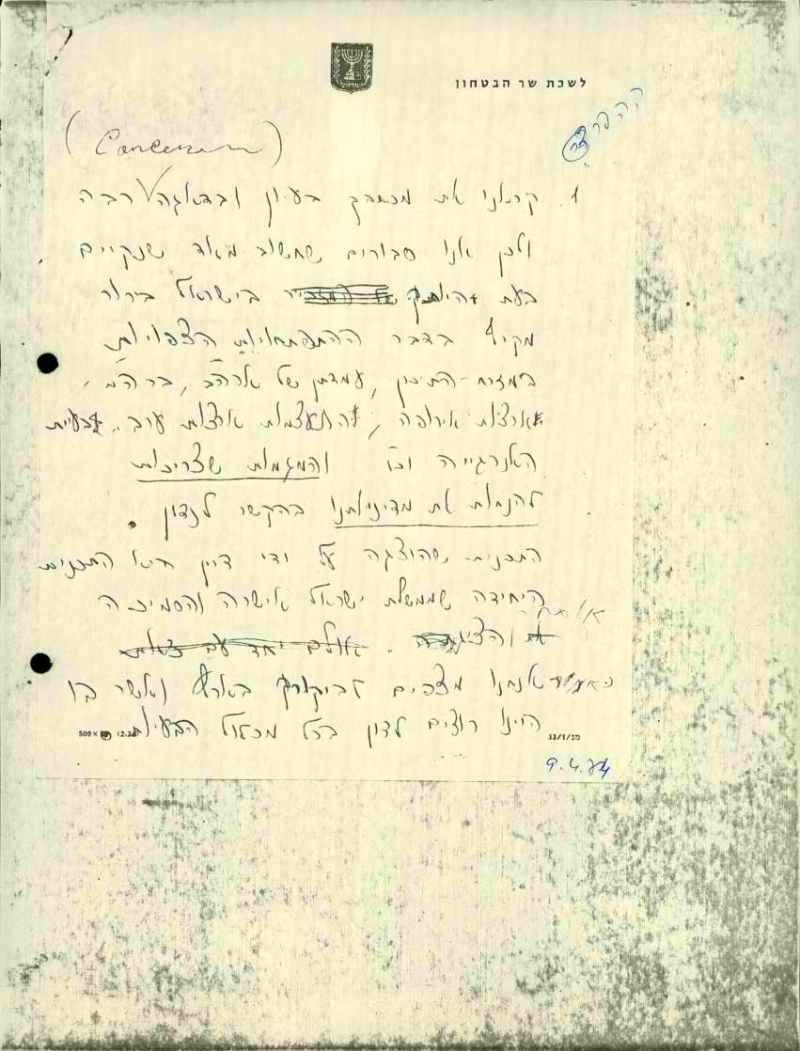 לשכת שר הבטחון
(Concern)
1. קראנו את מכתבך בעיון ובדאגה רבה
ולכן אנו סבורים שחשוב מאד שנקיים
בעת בישראל בירור
מקיף בדבר ההתפתחויות הצפויות
במזרח-התיכון, עמדתן של ארהב, בריהמ,
ארצות אירופה, התעצמות ארצות ערב, בעיית
האנרגייה וכו והמגמות שצריכות
להנחות את מדיניותנו בהקשר לנדון.
התכנית שהוצגה על ידי דיין היא התכנית
היחידה שממשלת ישראל אישרה והסמיכה
אותו
והציגה. אולם יחד עם זאת
אנחנו מצפים לביקורך בארץ ואשר בו
היינו רוצים לדון בכל מכלול הבעיות
500 × (2.73) 33/1/20
9.4.74